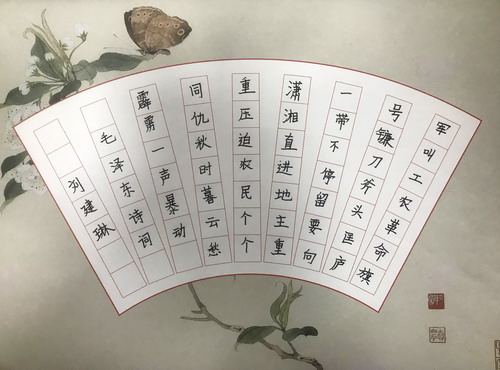 军叫工农革命旗
号镰刀斧头匡庐
一带不停留要向
潇湘直进地主重
重压迫农民个个
同仇秋时暮云愁
霹雳一声暴动
毛泽东诗词
刘建琳